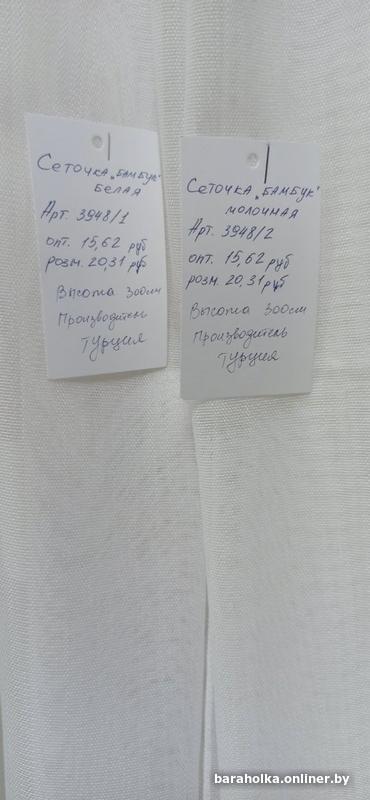 Сеточка „Бамбук"
белая
Арт. 3948/1
опт. 15,62 руб
розн. 20,31 руб
Высота 300см
Производитель
Турция
Сеточка „Бамбук"
молочная
Арт. 3948/2
опт. 15,62 руб
розн. 20,31 руб
Высота 300см
Производитель
Турция
baraholka.onliner.by